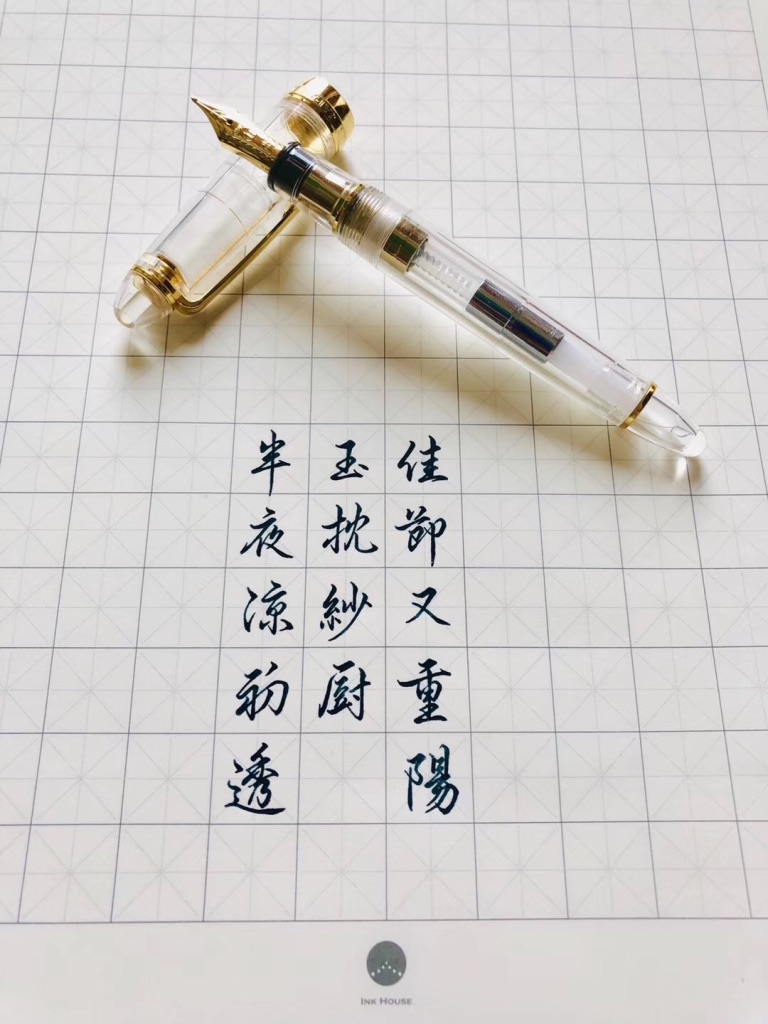 佳節又重陽
玉枕紗厨
半夜涼初透
INK HOUSE